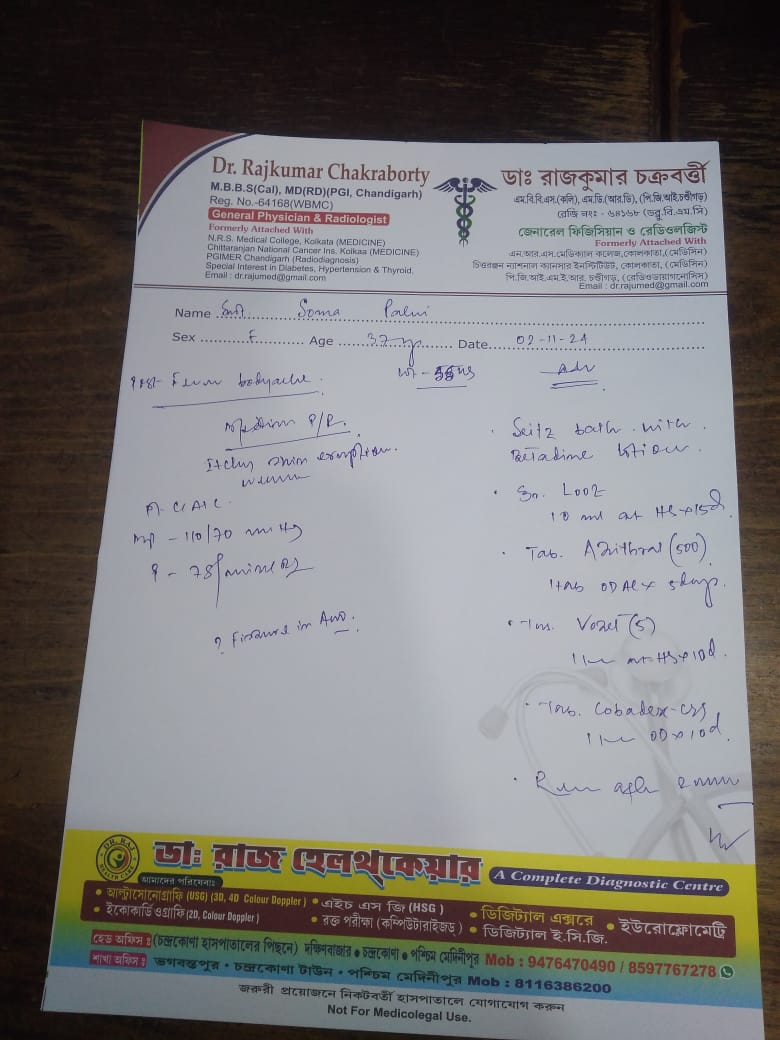 Dr. Rajkumar Chakraborty
M.B.B.S(Cal), MD(RD)(PGI, Chandigarh)
Reg. No.-64168(WBMC)
General Physician & Radiologist
Formerly Attached With
N.R.S. Medical College, Kolkata (MEDICINE)
Chittaranjan National Cancer Ins. Kolkaa (MEDICINE)
PGIMER Chandigarh (Radiodiagnosis)
Special Interest in Diabetes, Hypertension & Thyroid.
Email : dr.rajumed@gmail.com
ডাঃ রাজকুমার চক্রবর্ত্তী
এম.বি.বি.এস.(কলি), এম.ডি.(আর.ডি), (পি.জি.আই.চণ্ডীগড়)
রেজি নংঃ - ৬৪১৬৮ (ডব্লু.বি.এম.সি)
জেনারেল ফিজিসিয়ান ও রেডিওলজিস্ট
Formerly Attached With
এন.আর.এস.মেডিক্যাল কলেজ,কোলকাতা,(মেডিসিন)
চিত্তরঞ্জন ন্যাশনাল ক্যানসার ইনস্টিটিউট, কোলকাতা, (মেডিসিন)
পি.জি.আই.এম.ই.আর. চণ্ডীগড়, (রেডিওডায়াগনোসিস)
Email : dr.rajumed@gmail.com
Name Soma
Sex F Age 37 Date 02-11-24
bodyache.
Wt -
Adv
P/R.
Itchy skin
- 110/70 mmHg
- 78/min
? Fissure in Ano.
Seitz bath with
Betadine lotion.
LOOZ
10 ml at HS x 15d.
Tab. Azithral (500)
1 tab OD AC x 5 days.
Vozet (5)
at HS x 10d.
Tab. Cobadex-CZS
OD x 10d.
DR. RAJ
HEALTH CARE
ডাঃ রাজ হেলথ্‌কেয়ার
A Complete Diagnostic Centre
আমাদের পরিষেবাঃ
• আল্ট্রাসোনোগ্রাফি (USG) (3D, 4D Colour Doppler) • এইচ এস জি (HSG) • ডিজিট্যাল এক্সরে • ইউরোফ্লোমেট্রি
• ইকোকার্ডিওগ্রাফি (2D, Colour Doppler) • রক্ত পরীক্ষা (কম্পিউটারাইজড্) • ডিজিট্যাল ই.সি.জি.
হেড অফিস ঃ (চন্দ্রকোণা হাসপাতালের পিছনে) দক্ষিণবাজার • চন্দ্রকোণা • পশ্চিম মেদিনীপুর Mob : 9476470490 / 8597767278
শাখা অফিস ঃ ভগবন্তপুর • চন্দ্রকোণা টাউন • পশ্চিম মেদিনীপুর Mob : 8116386200
জরুরী প্রয়োজনে নিকটবর্তী হাসপাতালে যোগাযোগ করুন
Not For Medicolegal Use.